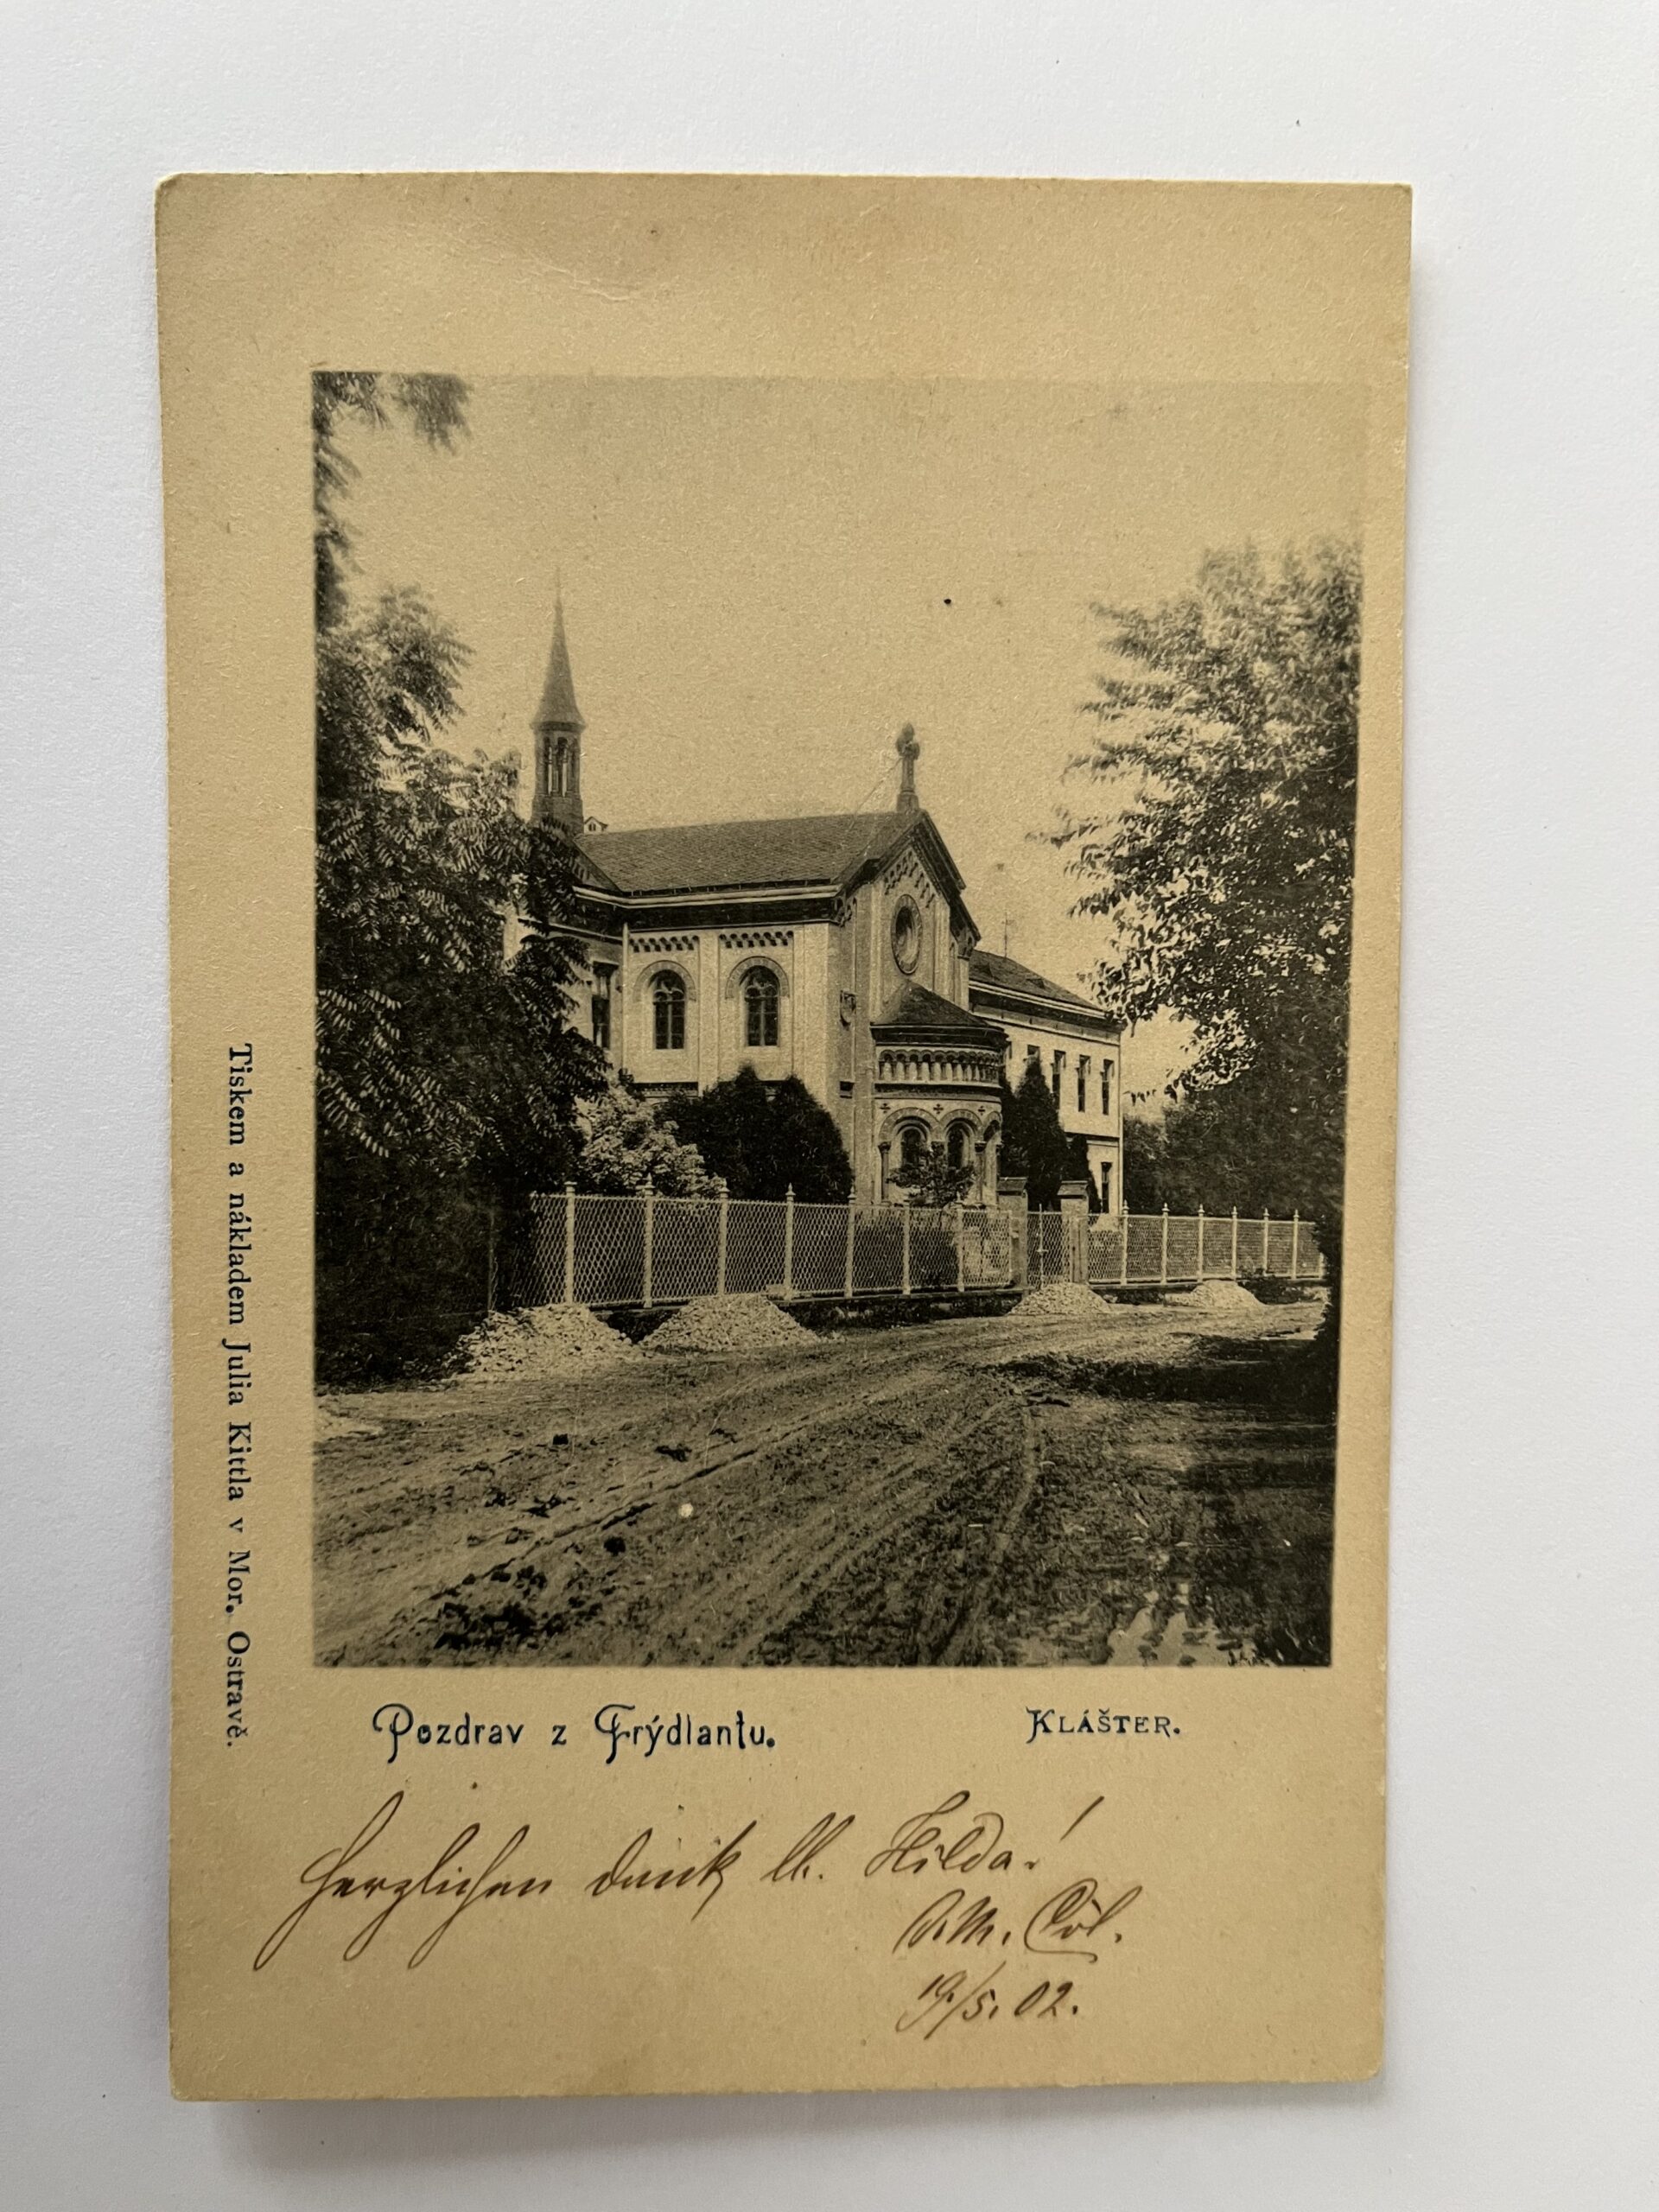 Tiskem a nákladem Julia Kittla v Mor. Ostravě.
Pozdrav z Frýdlantu.
KLÁŠTER.
Herzlichen Dank lb. Hilda!
19./5. 02.